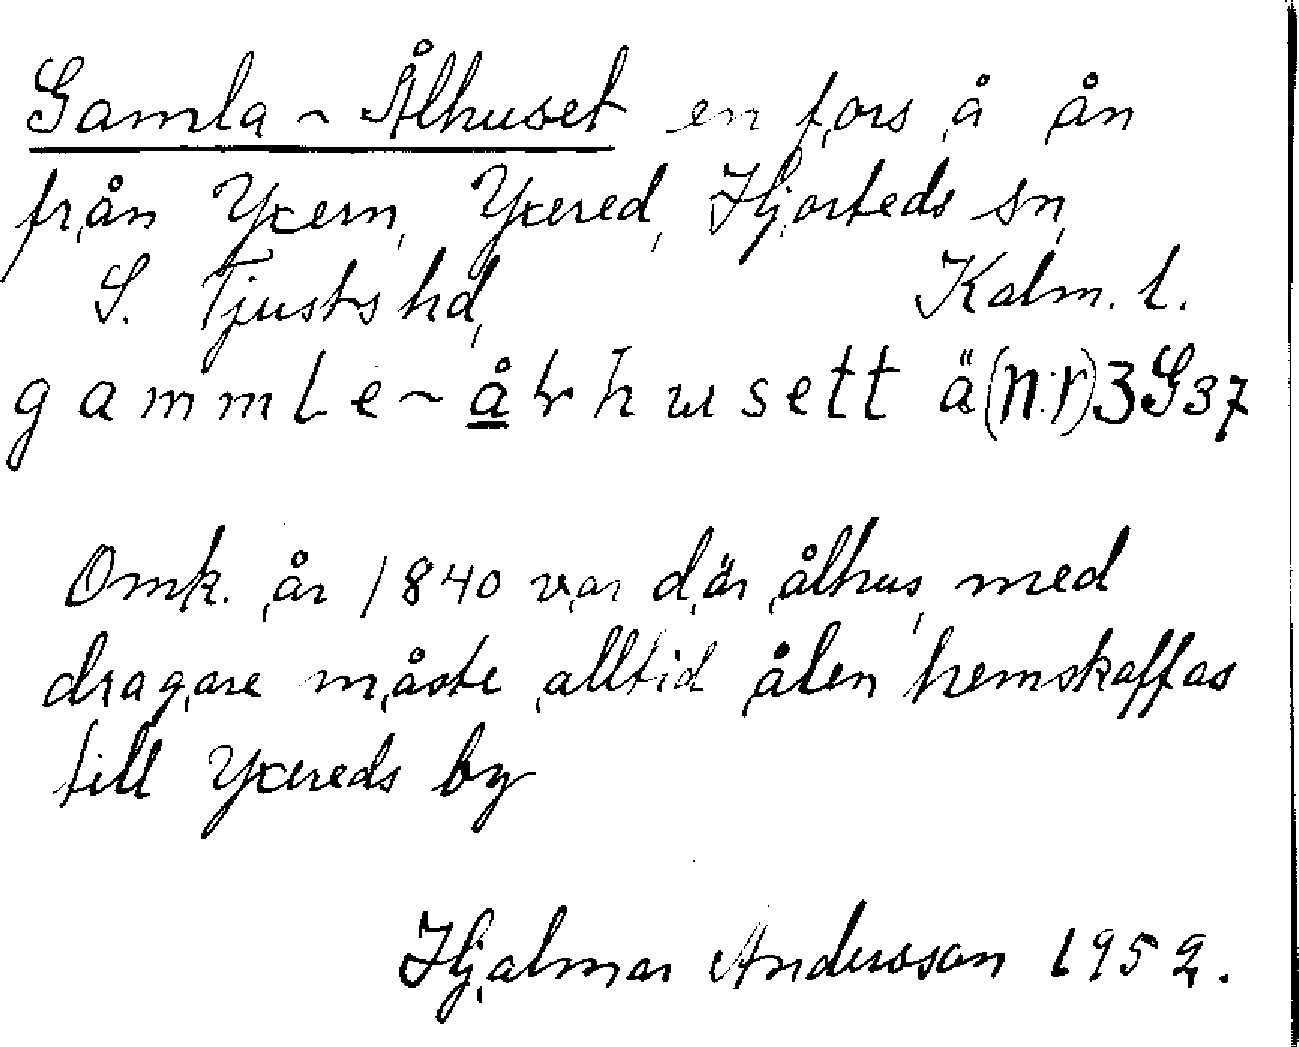 Gamla ~ Ålhuset en fors å ån
från Yxern, Yxered, Hjorteds sn,
S. Tjusts hd, Kalm. l.
gammle ~ åhusett ä (n:r) 3G37
Omk. år 1840 var där ålhus, med
dragare måste alltid ålen hemskaffas
till Yxereds by
Hjalmar Andersson 1952.